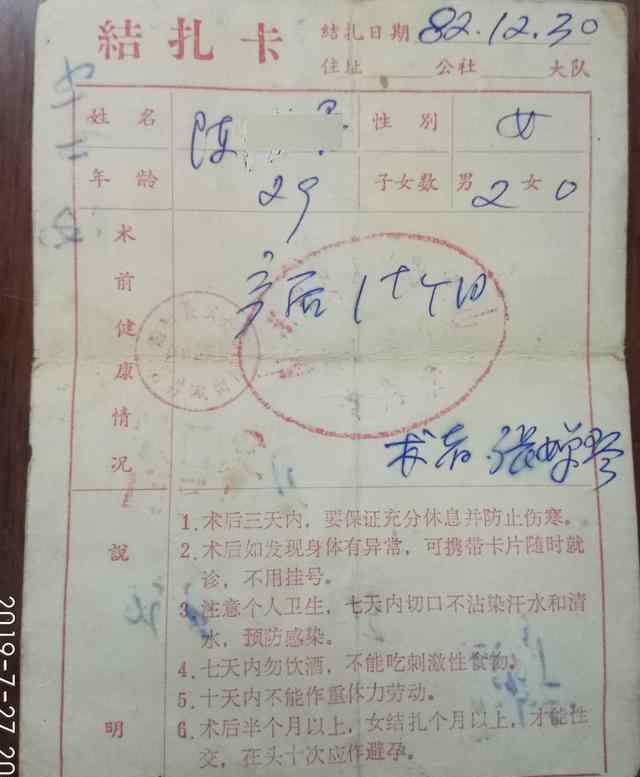 結扎卡
结扎日期 82.12.30
住址 公社 大队
姓名 陈 性别 女
年龄 29 子女数 男 2 女 0
术前健康情况
产后1个月
术者 张
說明
1.术后三天内，要保证充分休息并防止伤寒。
2.术后如发现身体有异常，可携带卡片随时就
诊，不用挂号。
3.注意个人卫生，七天内切口不沾染汗水和清
水，预防感染。
4.七天内勿饮酒，不能吃刺激性食物。
5.十天内不能作重体力劳动。
6.术后半个月以上，女结扎个月以上，才能性
交，在头十次应作避孕。
2019-7-27 20